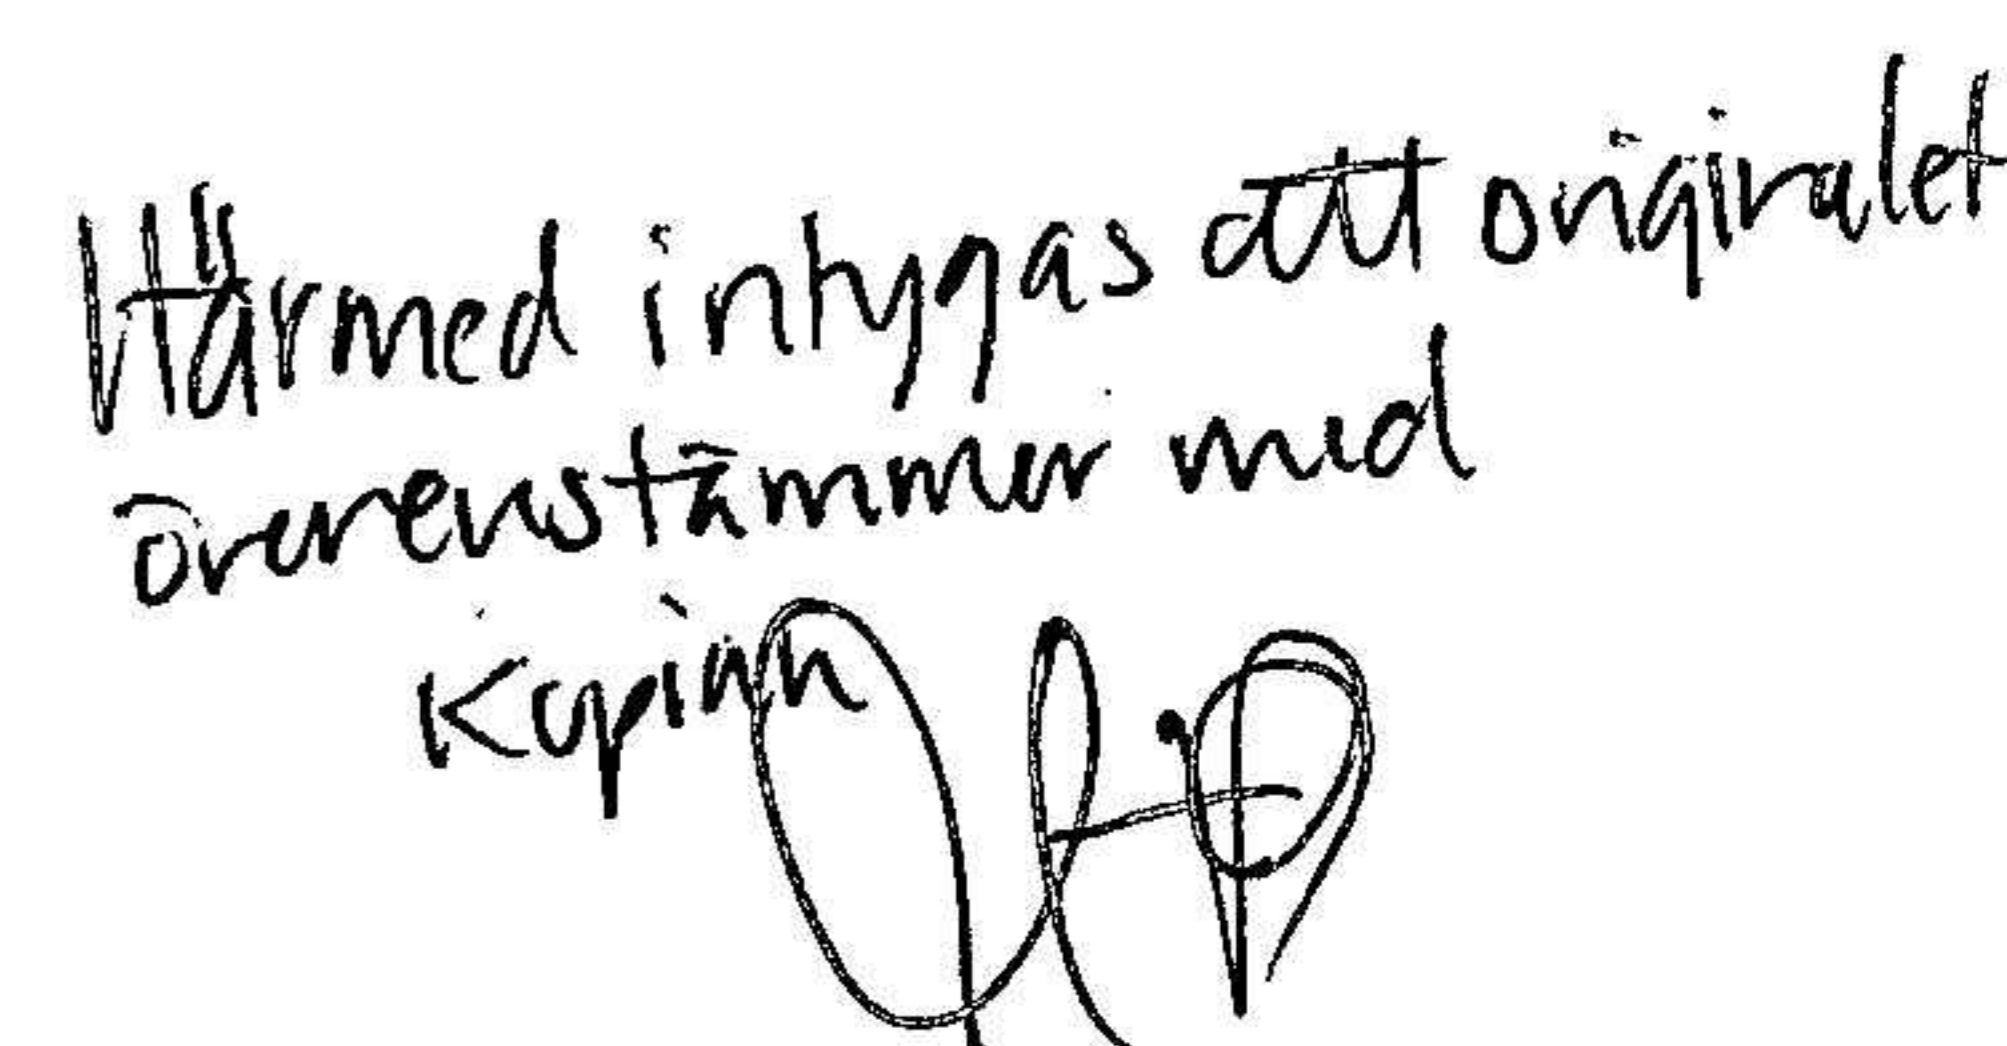 Härmed intygas att originalet
överenstämmer med
Kopian